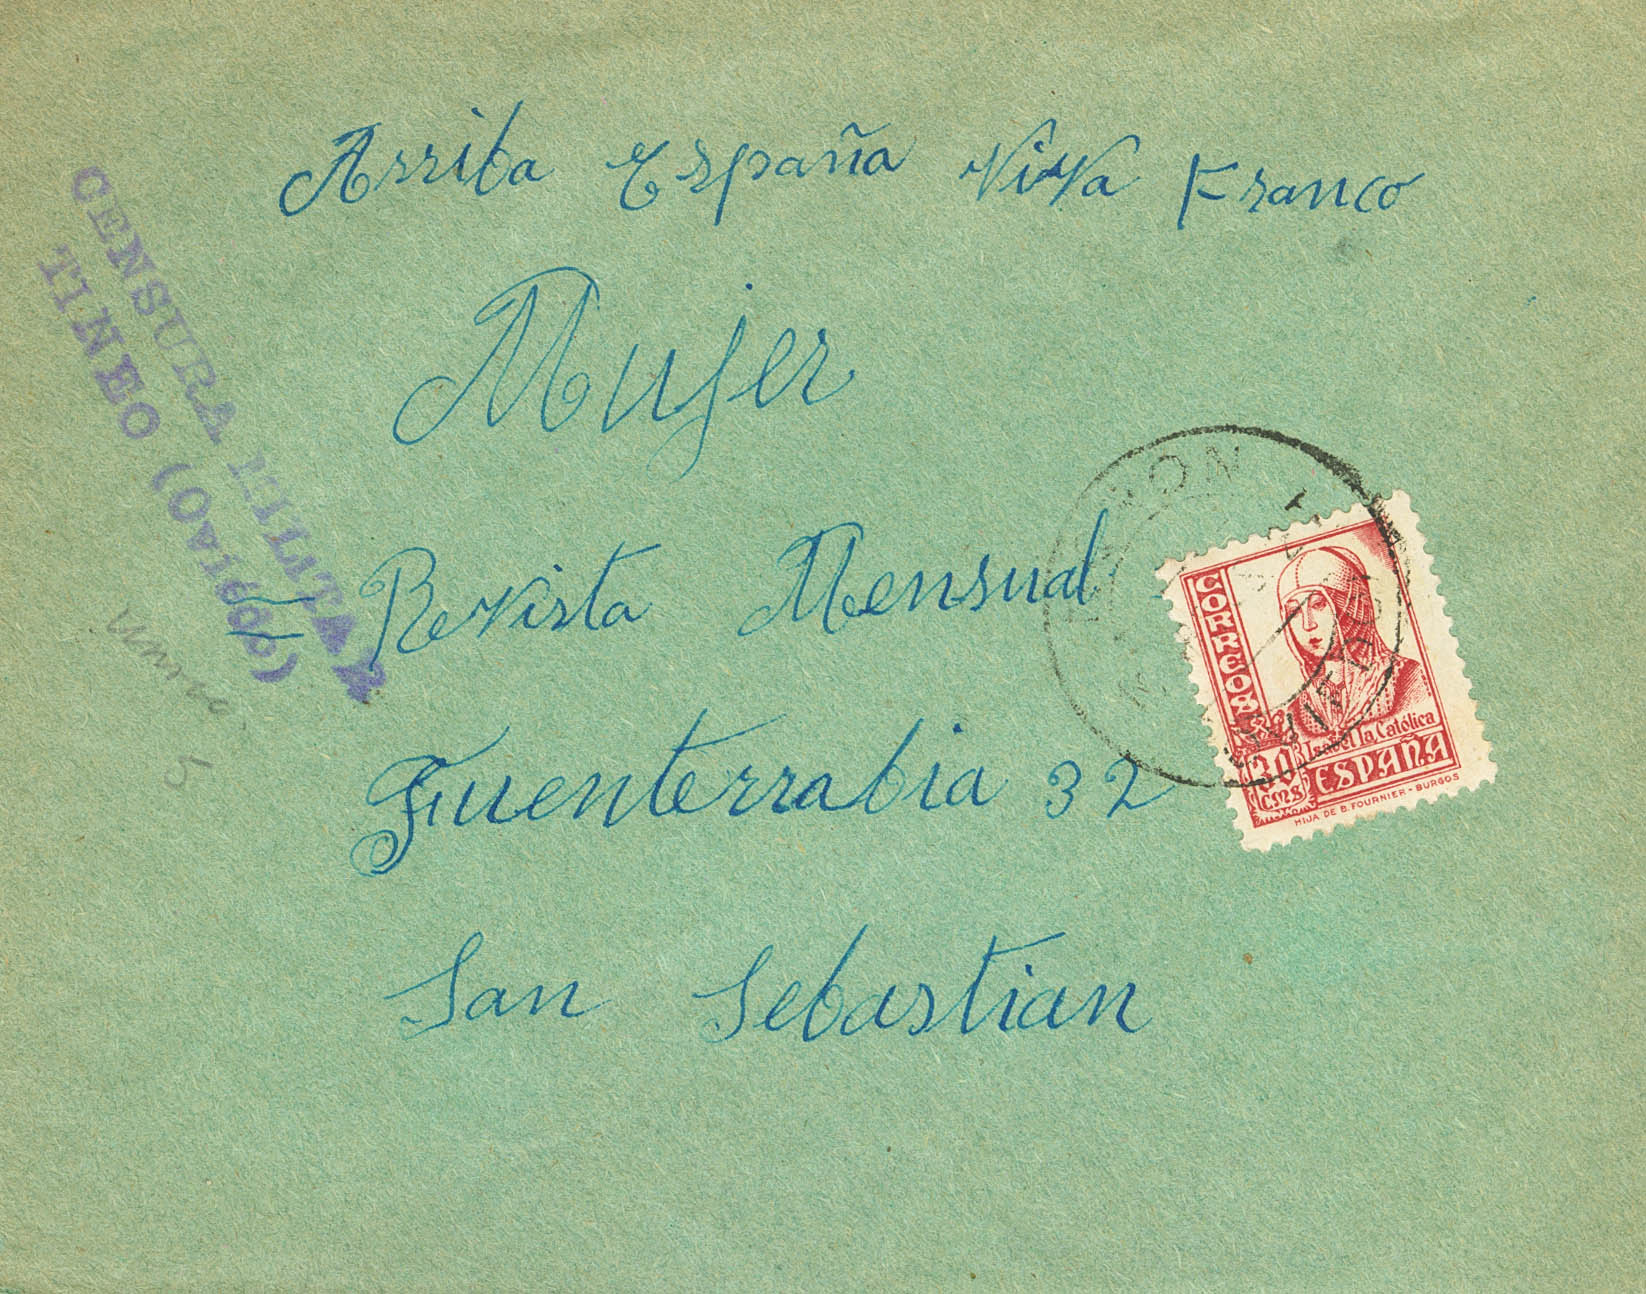 Arriba España ViVa Franco
CENSURA MILITAR
TINEO (Oviedo)
Mujer
Revista Mensual
Fuenterrabia 32
San Sebastian
CORREOS
30
CMS
Isabel la Católica
ESPAÑA
HIJA DE B. FOURNIER - BURGOS
5